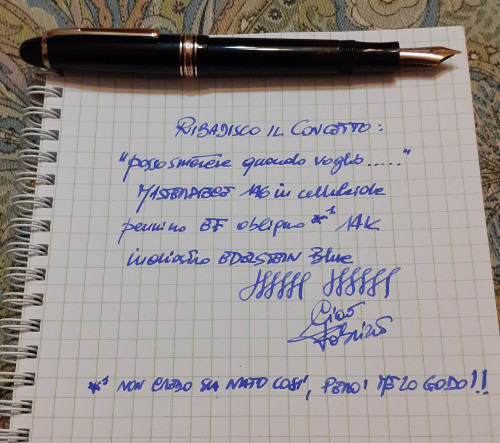 RIBADISCO IL CONCETTO:
"posso smettere quando voglio....."
MASTERPIECE 146 in celluloide
pennino EF obliquo *¹ 14K
inchiostro EDELSTEIN Blue
Ciao
Fabrizio
*¹ NON CREDO SIA NATO COSI', PERO' ME LO GODO!!